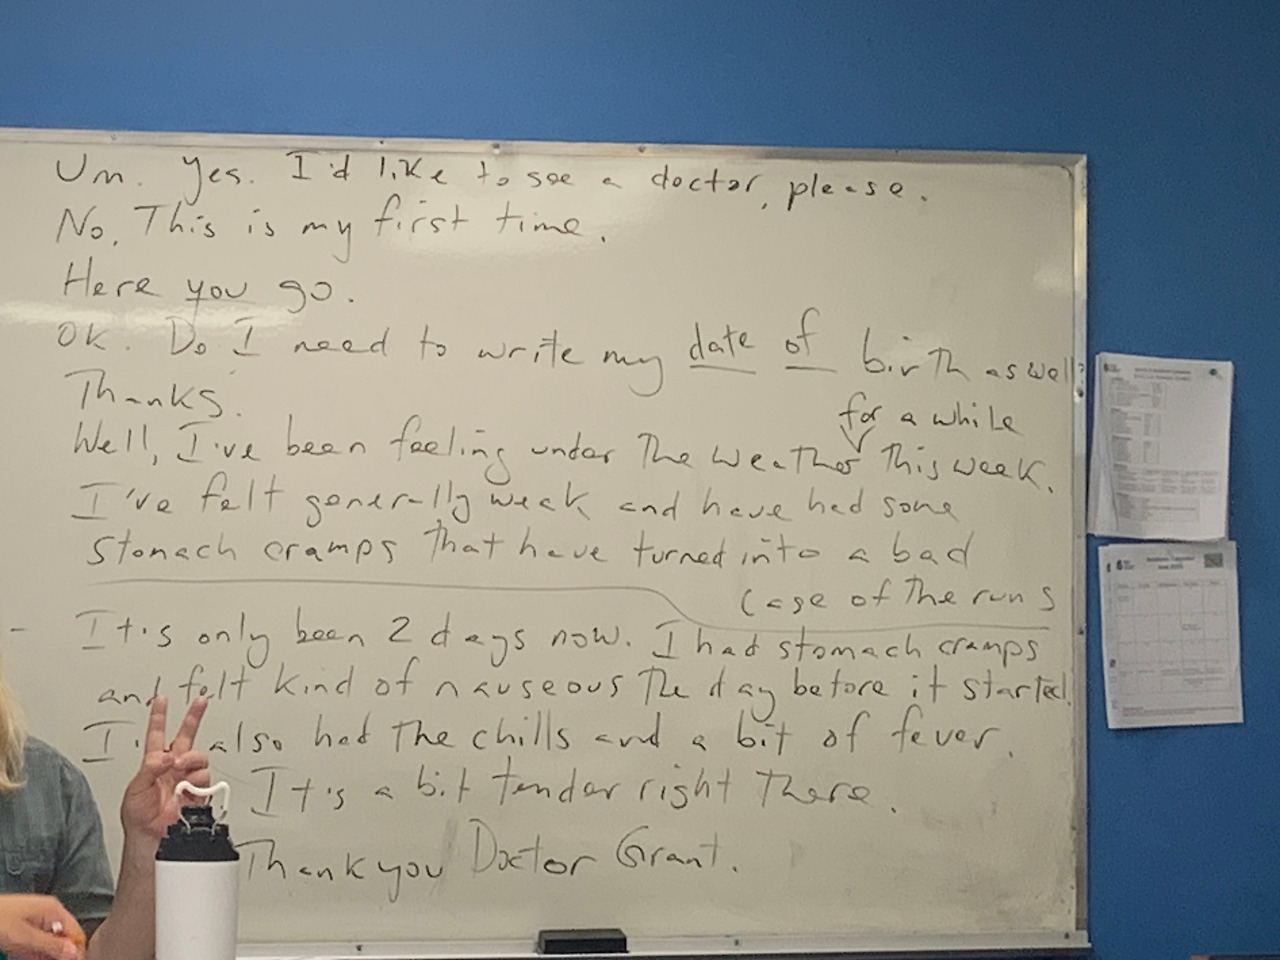 Um. Yes. I'd like to see a doctor, please.
No. This is my first time.
Here you go.
OK. Do I need to write my date of birth as well?
Thanks.
for a while
Well, I've been feeling under the weather this week.
I've felt generally weak and have had some
stomach cramps that have turned into a bad
case of the runs
- It's only been 2 days now. I had stomach cramps
and felt kind of nauseous the day before it started.
also had the chills and a bit of fever.
It's a bit tender right there.
Thank you Doctor Grant.